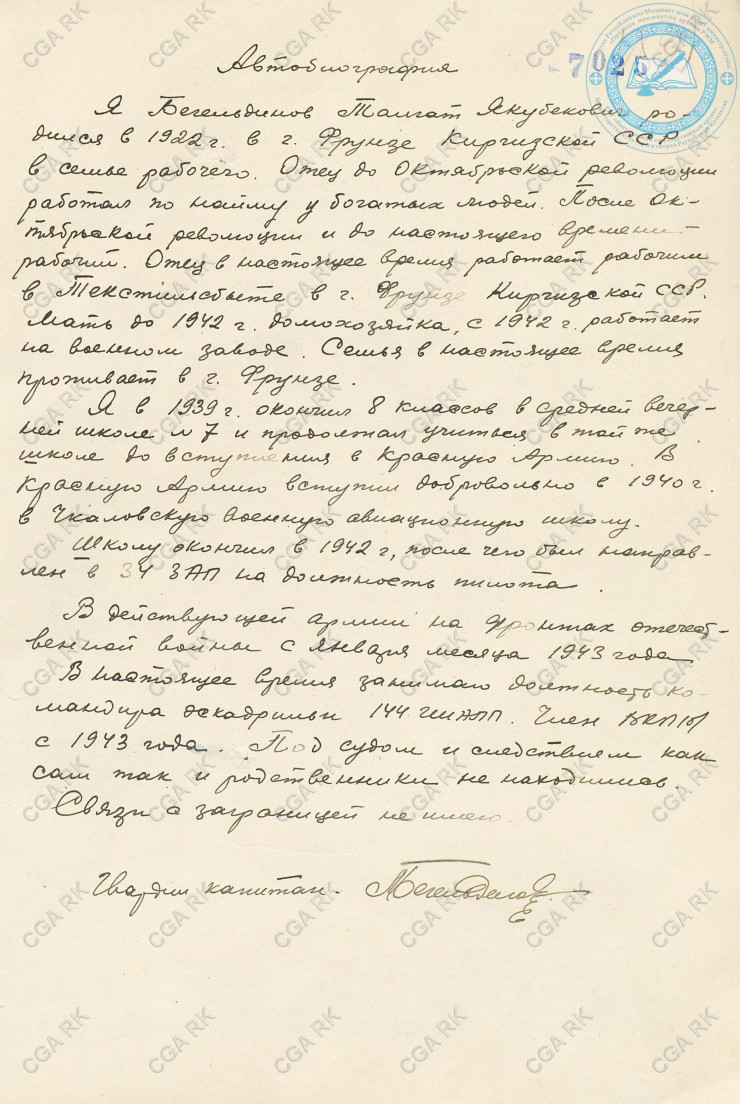 Автобиография
7025
Я Бегельдинов Талгат Якубекович ро-
дился в 1922 г. в г. Фрунзе Киргизской ССР
в семье рабочего. Отец до Октябрьской революции
работал по найму у богатых людей. После Ок-
тябрьской революции и до настоящего времени -
рабочий. Отец в настоящее время работает рабочим
в Текстильсбыте в г. Фрунзе Киргизской ССР.
Мать до 1942 г. домохозяйка, с 1942 г. работает
на военном заводе. Семья в настоящее время
проживает в г. Фрунзе.
Я в 1939 г. окончил 8 классов в средней вечер-
ней школе № 7 и продолжал учиться в той же
школе до вступления в Красную Армию. В
Красную Армию вступил добровольно в 1940 г.
в Чкаловскую военную авиационную школу.
Школу окончил в 1942 г, после чего был направ-
лен в 34 ЗАП на должность пилота.
В действующей армии на Фронтах отечест-
венной войны с января месяца 1943 года
В настоящее время занимаю должность ко-
мандира эскадрильи 144 ГШАП. Член ВКП(б)
с 1943 года. Под судом и следствием как
сам так и родственники не находились.
Связи с заграницей не имею.
Гвардии капитан. Бегельдинов
CGA RK